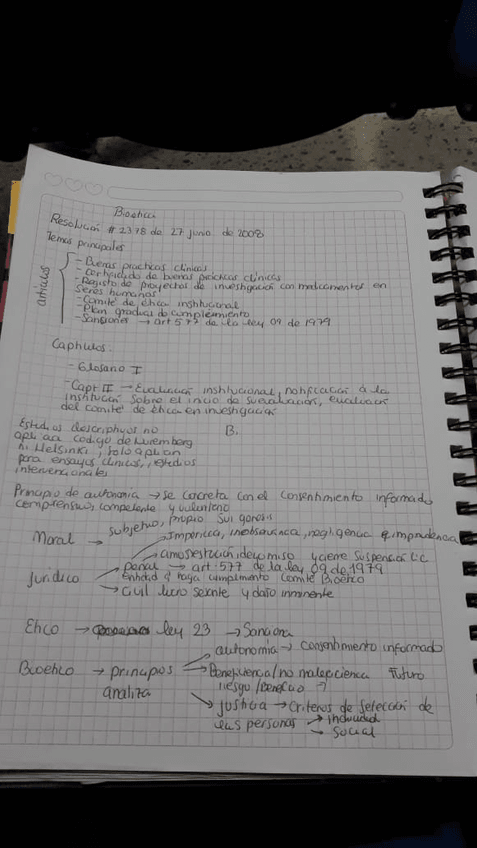 Bioetica
Resolucion # 2378 de 27 junio de 2008
Temas principales
artículos
- Buenas practicas clinicas
- Certificado de buenas prácticas clinicas
- Registro de proyectos de investigación con medicamentos en
seres humanos
- Comité de ética institucional
- Plan gradual de cumplimiento
- Sanciones → art 577 de la ley 09 de 1979
Capitulos:
- Glosario I
- Capt II → Evaluación institucional, notificación a la
institución sobre el inicio de su evaluación, evaluación
del comité de ética en investigación
Estudios descriptivos no
aplica codigo de Nuremberg
ni Helsinki, solo aplican
para ensayos clinicos, estudios
intervencionales
B.
Principio de autonomia → se concreta con el consentimiento informado
comprensivo, competente y voluntario
Moral → subjetivo, propio sui generis
Juridico
Impericia, inobservancia, negligencia e imprudencia
amonestación, decomiso y cierre suspension lic
penal → art. 577 de la ley 09 de 1979
entidad q haga cumplimiento comité Bioetico
→ Civil lucro cesante y daño inminente
Etico → ley 23 → Sanciona
Bioetico → principios
analiza
autonomia → consentimiento informado
→ Beneficencia/no maleficiencia futuro
riesgo/beneficio
→ justicia → Criterios de selección de
las personas → individual
→ social